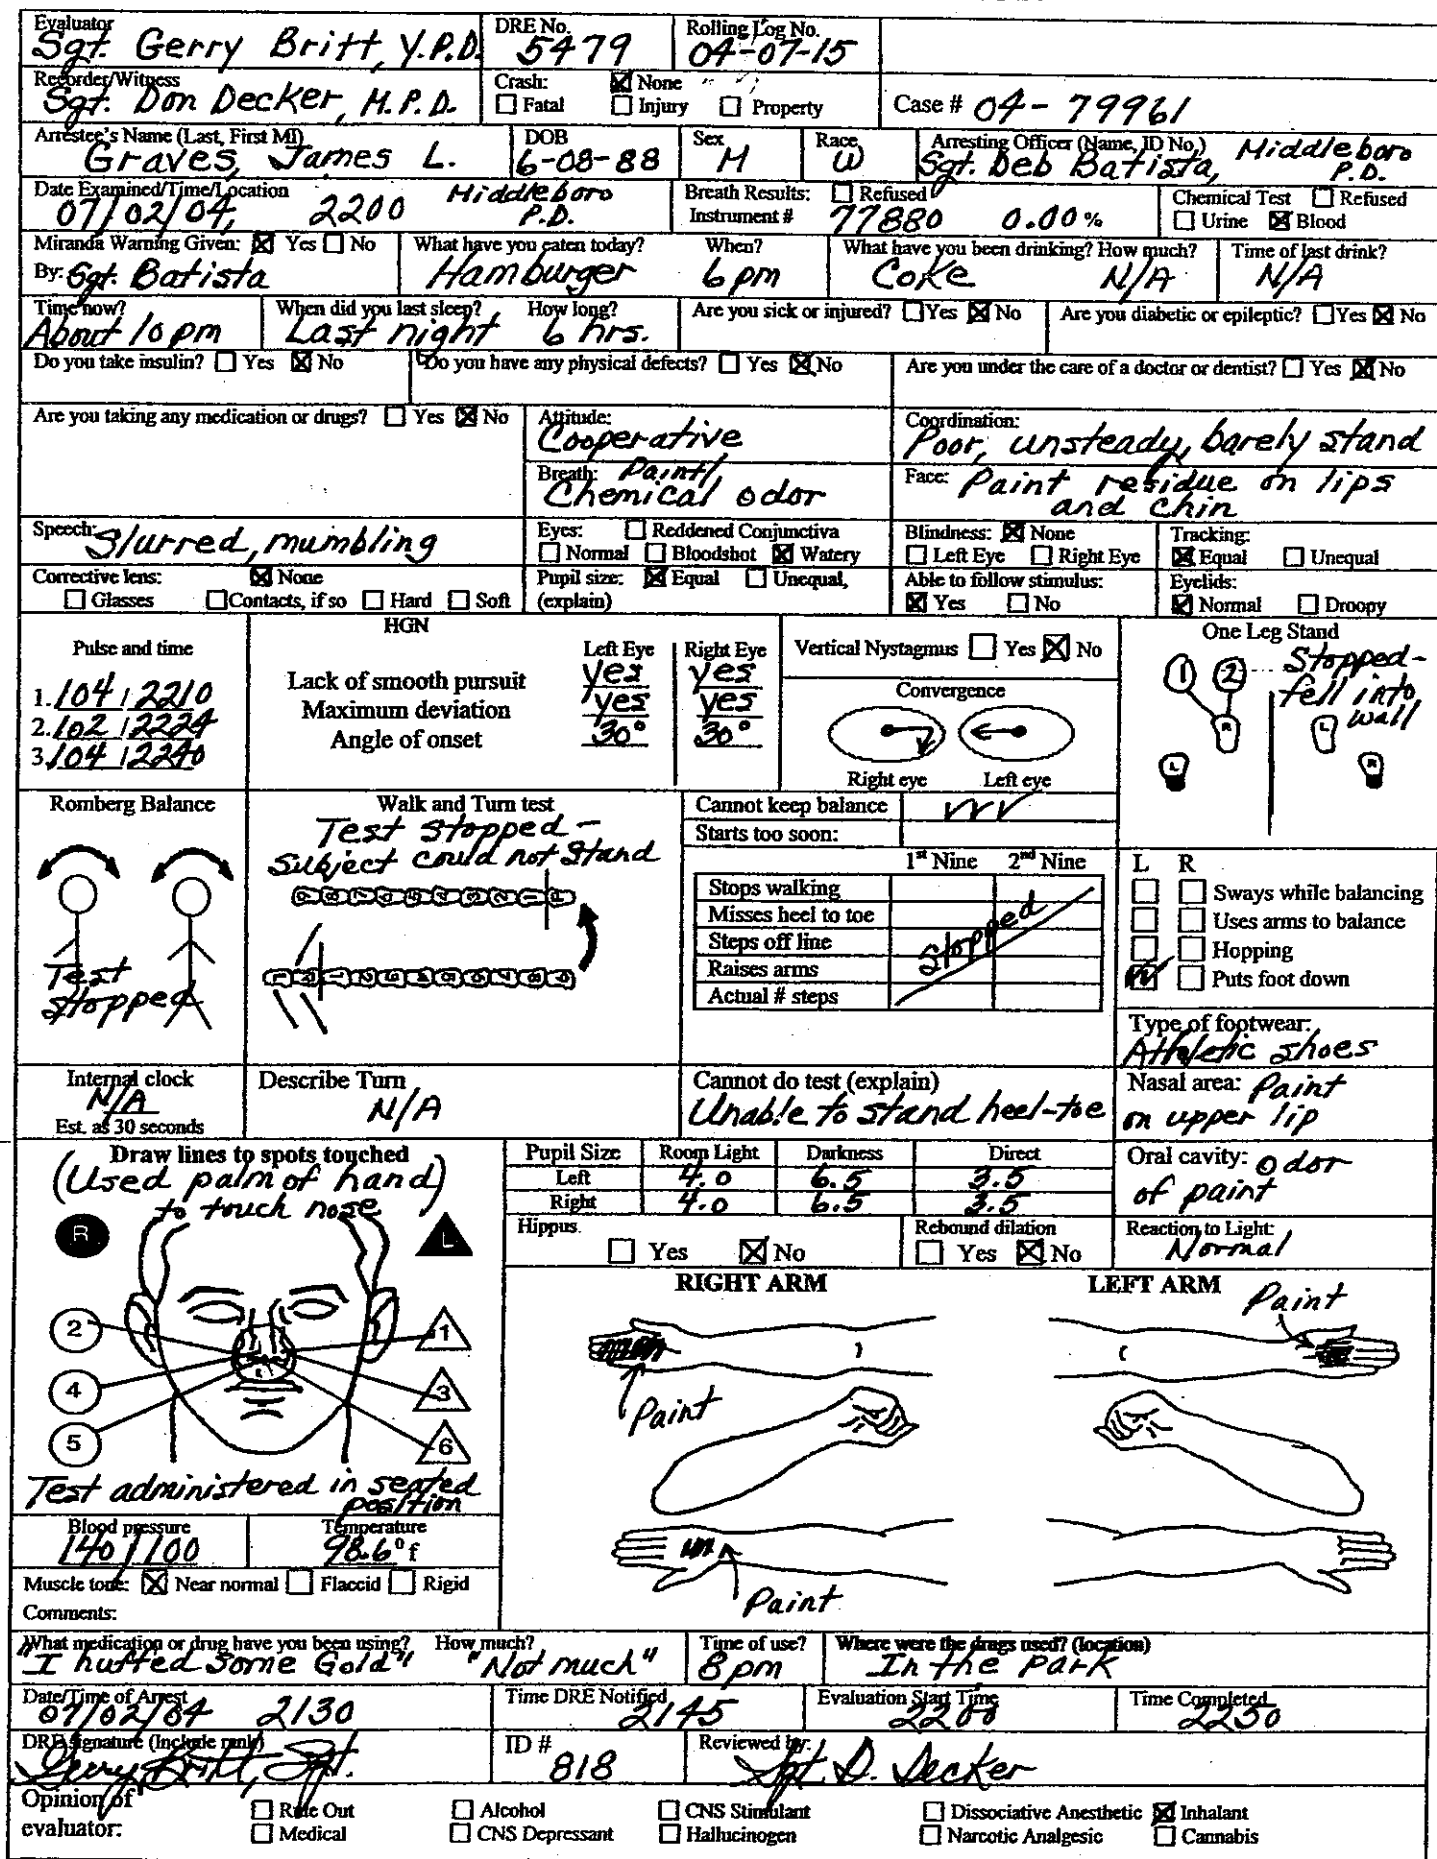 Evaluator
Sgt. Gerry Britt, Y.P.D.
DRE No.
5479
Rolling Log No.
04-07-15
Recorder/Witness
Sgt. Don Decker, M.P.D.
Crash: ☒ None
☐ Fatal ☐ Injury ☐ Property
Case # 04-79961
Arrestee's Name (Last, First MI)
Graves, James L.
DOB
6-08-88
Sex
M
Race
W
Arresting Officer (Name, ID No.)
Sgt. Deb Batista, Middleboro P.D.
Date Examined/Time/Location
07/02/04, 2200 Middleboro P.D.
Breath Results: ☐ Refused
Instrument # 77880 0.00%
Chemical Test ☐ Refused
☐ Urine ☒ Blood
Miranda Warning Given: ☒ Yes ☐ No
By: Sgt. Batista
What have you eaten today? When?
Hamburger 6 pm
What have you been drinking? How much?
Coke N/A
Time of last drink?
N/A
Time now?
About 10 pm
When did you last sleep? How long?
Last night 6 hrs.
Are you sick or injured? ☐ Yes ☒ No
Are you diabetic or epileptic? ☐ Yes ☒ No
Do you take insulin? ☐ Yes ☒ No
Do you have any physical defects? ☐ Yes ☒ No
Are you under the care of a doctor or dentist? ☐ Yes ☒ No
Are you taking any medication or drugs? ☐ Yes ☒ No
Attitude:
Cooperative
Coordination:
Poor, unsteady, barely stand
Breath: Paint/
Chemical odor
Face: Paint residue on lips
and chin
Speech: Slurred, mumbling
Eyes: ☐ Reddened Conjunctiva
☐ Normal ☐ Bloodshot ☒ Watery
Blindness: ☒ None
☐ Left Eye ☐ Right Eye
Tracking:
☒ Equal ☐ Unequal
Corrective lens: ☒ None
☐ Glasses ☐ Contacts, if so ☐ Hard ☐ Soft
Pupil size: ☒ Equal ☐ Unequal,
(explain)
Able to follow stimulus:
☒ Yes ☐ No
Eyelids:
☒ Normal ☐ Droopy
Pulse and time
1. 104 / 2210
2. 102 / 2224
3. 104 / 2240
HGN
Left Eye Right Eye
Lack of smooth pursuit yes yes
Maximum deviation yes yes
Angle of onset 30° 30°
Vertical Nystagmus ☐ Yes ☒ No
Convergence
Right eye Left eye
One Leg Stand
1 2 Stopped-
fell into
wall
R L
L R
Romberg Balance
Test
Stopped
Walk and Turn test
Test stopped -
Subject could not stand
Cannot keep balance
Starts too soon:
1st Nine 2nd Nine
Stops walking
Misses heel to toe
Steps off line
Raises arms
Actual # steps
Stopped
L R
☐ ☐ Sways while balancing
☐ ☐ Uses arms to balance
☐ ☐ Hopping
☒ ☐ Puts foot down
Type of footwear:
Athletic shoes
Internal clock
N/A
Est. as 30 seconds
Describe Turn
N/A
Cannot do test (explain)
Unable to stand heel-toe
Nasal area: Paint
on upper lip
Draw lines to spots touched
(Used palm of hand)
to touch nose
R L
2 1
4 3
5 6
Test administered in seated
position
Pupil Size Room Light Darkness Direct
Left 4.0 6.5 3.5
Right 4.0 6.5 3.5
Oral cavity: odor
of paint
Hippus.
☐ Yes ☒ No
Rebound dilation
☐ Yes ☒ No
Reaction to Light:
Normal
RIGHT ARM LEFT ARM
Paint
Paint
Paint
Blood pressure
140/100
Temperature
98.6° f
Muscle tone: ☒ Near normal ☐ Flaccid ☐ Rigid
Comments:
What medication or drug have you been using? How much?
"I huffed some Gold" "Not much"
Time of use?
8 pm
Where were the drugs used? (location)
In the park
Date/Time of Arrest
07/02/04 2130
Time DRE Notified
2145
Evaluation Start Time
2200
Time Completed
2250
DRE signature (Include rank)
Gerry Britt, Sgt.
ID #
818
Reviewed by:
Sgt. D. Decker
Opinion of
evaluator:
☐ Rule Out ☐ Alcohol ☐ CNS Stimulant ☐ Dissociative Anesthetic ☒ Inhalant
☐ Medical ☐ CNS Depressant ☐ Hallucinogen ☐ Narcotic Analgesic ☐ Cannabis